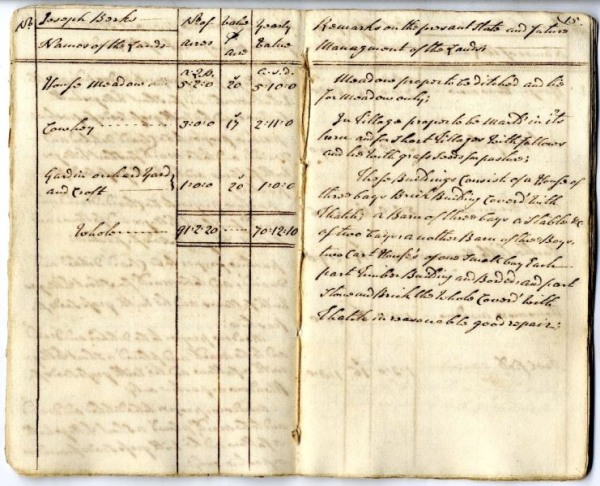 No. Joseph Borks No. of value Yearly
Names of the Lands acres acre Value
a. r. p. s £. s. d.
House Meadow 5:2:0 20 5:10:0
Cowhey 3:0:0 17 2:11:0
Garden orchard Yard
and Croft 1:0:0 20 1:0:0
Whole 91:2:20 70:12:10
15
Remarks on the present State and future
Managment of the Lands
Meadow propose to be ditched and lie
for Meadow only;
In Tillage propose to be Marld in its
turn and for Short Tillages with fallows
and lie with grass seeds for pasture;
These Buildings Consist of a House of
three bays Brick Building Cover'd with
Thatch; a Barn of three bays a Stable &c
of two bays another Barn of three Bays,
two Cart House's of one Small bay Each
part timber Building and Boded and part
Stone and Brick the Whole Cover'd with
Thatch in reasonable good repair;